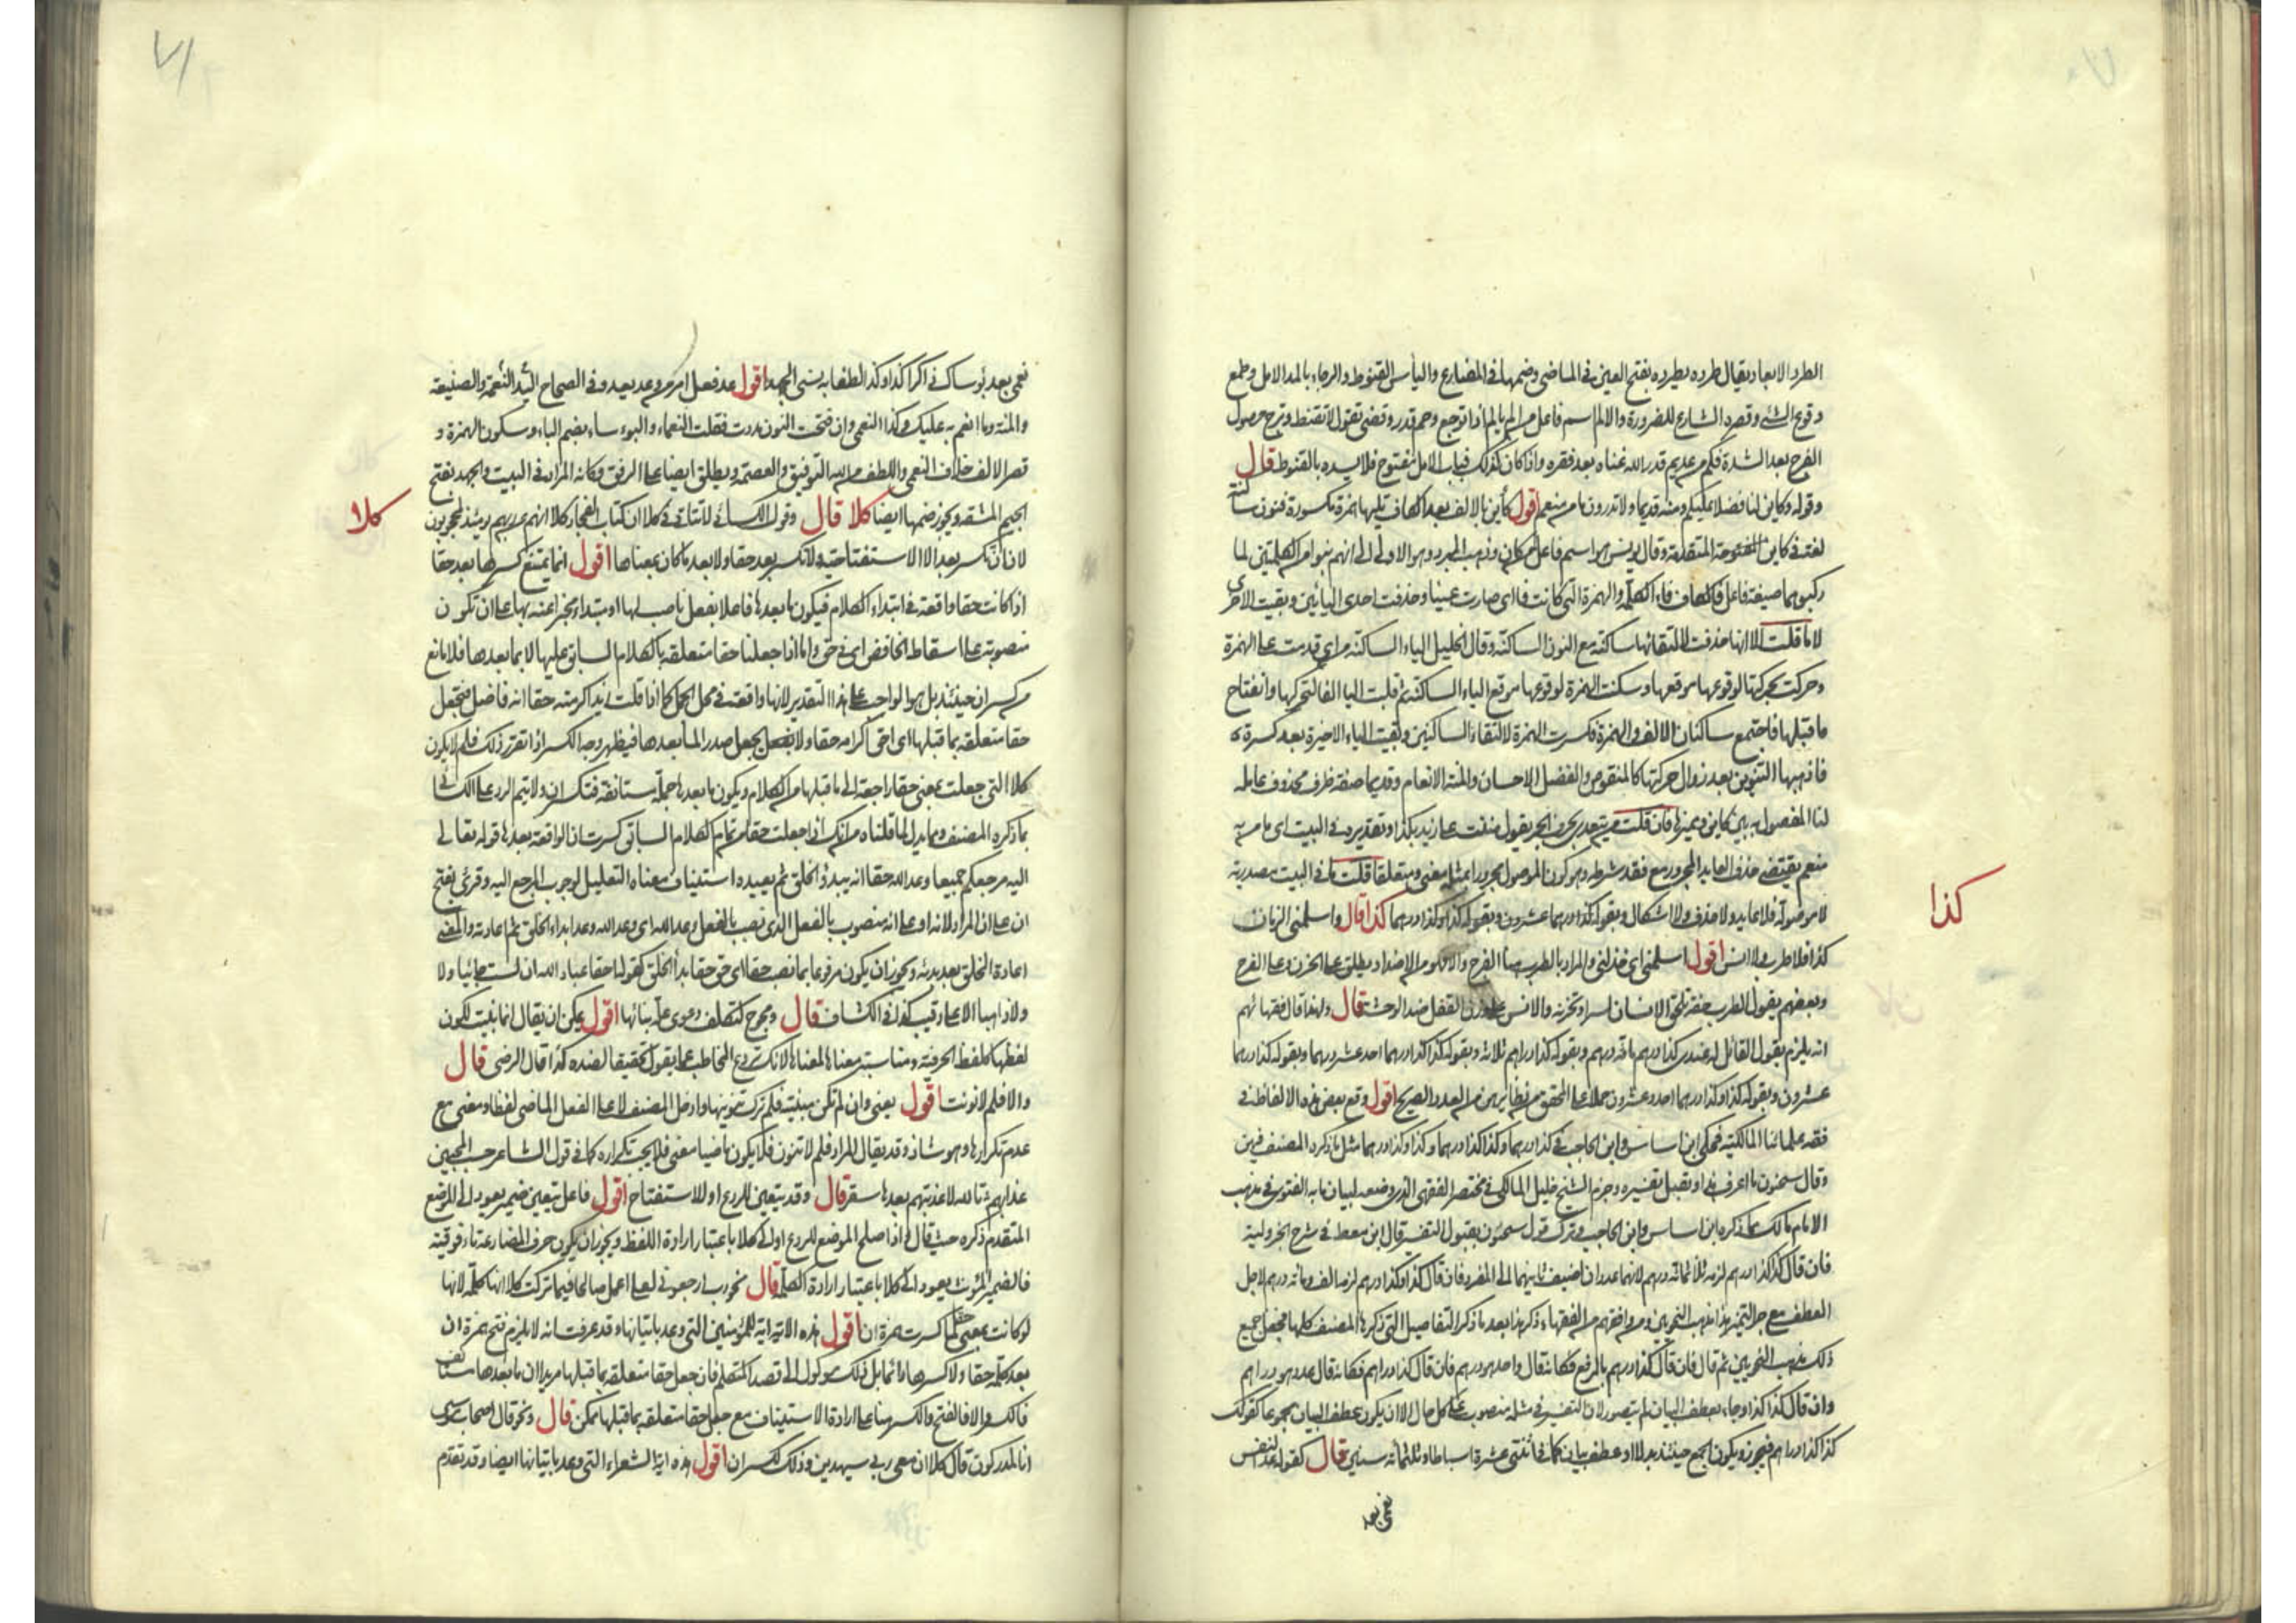 الطرد الابعاد يقال طرده يطرده بفتح العين في الماضي وضمها في المضارع والياس القنوط والرجاء بالمد الامل وطمع
وقوع الشي وقصره الشارع للضرورة والالم اسم فاعل من الم يالم اذا توجع وحم قدر وقضي تقول لا تقنط وترج حصول
الفرج بعد الشدة فكم من عديم قدر الله غناه بعد فقره واذا كان كذلك فباب الامل مفتوح فلا يسده بالقنوط قال
وقوله وكاين لنا فضلا عليكم ومنة قديما ولا تدرون ما من منعم اقول كاين بالالف بعد الكاف تليها همزة مكسورة فنون ساكنة
لغة في كاين المفتوحة المتقدمة وقال يونس هو اسم فاعل من كان وذهب المبرد وهو الاولى الى انهم بنوا من الكلمتين لما
ركبوهما صيغة فاعل فالكاف فاء الكلمة والهمزة التي كانت فا اي صارت عينا وحذفت احدى اليائين وبقيت الاخرى
لاما قلت الا انها حذفت لالتقائها ساكنة مع النون الساكنة وقال الخليل الياء الساكنة من اي قدمت على الهمزة
وحركت بحركتها لوقوعها موقعها وسكنت الهمزة لوقوعها موقع الياء الساكنة ثم قلبت اليا الفا لتحركها وانفتاح
ما قبلها فاجتمع ساكنان الالف والهمزة فكسرت الهمزة لالتقاء الساكنين وبقيت الياء الاخيرة بعد كسرة
فاذهبها التنوين بعد زوال حركتها كالمنقوص والفضل الاحسان والمنة الانعام وقديما صفة ظرف محذوف عامله
لنا المفصول به بين كاين ومميزها فان قلت من يتعدى بحرف الجر يقول مننت على زيد بكذا وتقديره في البيت اي ما من به
منعم يقتضي حذف العايد المجرور مع فقد شرطه وهو كون الموصول مجرورا بمثله معنى ومتعلقا قلت ما في البيت مصدرية
لا موصولة فلا عايد ولا حذف ولا اشكال وبقوله كذا درهما عشرون وبقوله كذا وكذا درهما كذا قال واسلمني الزمان
كذا فلا طرب ولا انس اقول اسلمني اي خذلني والمراد بالطرب هنا الفرح والا فهو من الاضداد يطلق على الحزن وعلى الفرح
وبعضهم يقول الطرب خفة تلحق الانسان لسرا وتحزنه والانس على وزن القفل ضد الوحشة قال ولهذا قال فقهائهم
انه يلزم بقول القائل له عندي كذا درهم مائة درهم وبقوله كذا دراهم ثلاثة وبقوله كذا كذا درهما احد عشر درهما وبقوله كذا درهما
عشرون وبقوله كذا وكذا درهما احد وعشرون حملا على المحقق من نظايرهن من العدد الصريح اقول وقع بعض هذه الالفاظ في
فقه علمائنا المالكية فحكى ابن شاس وابن الحاجب في كذا درهما وكذا كذا درهما وكذا وكذا درهما مثل ما ذكره المصنف فيهن
وقال سحنون ما اعرف هذا وتقبل تفسيره وجزم الشيخ خليل المالكي في مختصره الفقهي الذي وضعه لبيان ما به الفتوى في مذهب
الامام مالك بما ذكره ابن شاس وابن الحاجب وترك قول سحنون بقبول التفسير قال ابن معط في شرح الجزولية
فان قال كذا كذا درهم لزمه ثلاثمائة درهم لانهما عددان اضيف ثانيهما الى المفرد فان قال كذا وكذا درهم لزمه الف ومائة درهم لاجل
العطف مع جر التمييز هذا مذهب النحويين ومن وافقهم من الفقهاء ذكر هذا بعد ما ذكر التفاصيل التي ذكرها المصنف كلها فجعل جميع
ذلك مذهب النحويين ثم قال فان قال كذا درهم بالرفع فكانه قال واحد هو درهم فان قال كذا دراهم فكانه قال عدد هو دراهم
وان قال كذا كذا وجاء بعطف البيان لم يتصور لان التفسير في مثله منصوب على كل حال الا ان يكون عطف البيان مجموعا كقولك
كذا كذا دراهم فيجوز ويكون الجمع حينئذ بدلا او عطف بيان كما في اثنتي عشرة اسباطا وثلثمائة سنين قال كقوله عد النفس
نعمى بعد
كذا
نعمى بعد بؤساك ذاكرا كذا وكذا لطفا به نسي الجهد اقول عد فعل امر من وعد يعد وفي الصحاح اليد النعمة والصنيعة
والمنة وما انعم به عليك وكذا النعمى وان فتحت النون مددت فقلت النعماء والبوساء بضم الباء وسكون الهمزة و
قصر الالف خلاف النعمى واللطف من الله التوفيق والعصمة ويطلق ايضا على الرفق وكانه المراد في البيت والجهد بفتح
الجيم المشقة ويجوز ضمها ايضا كلا قال وقول الكسائي لا يتاتى في كلا ان كتاب الفجار كلا انهم عن ربهم يومئذ لمحجوبون
لان ان تكسر بعد الا الاستفتاحية ولا تكسر بعد حقا ولا بعد ما كان بمعناها اقول انما يمتنع كسرها بعد حقا
اذا كانت حقا واقعة في ابتداء الكلام فيكون ما بعدها فاعلا بفعل ناصب لها او مبتداء يخبر عنه بها على ان تكون
منصوبة على اسقاط الخافض اي في حق واما اذا جعلنا حقا متعلقة بالكلام السابق عليها لا بما بعدها فلا مانع
من كسر ان حينئذ بل هو الواجب على هذا التقدير لانها واقعة في محل الجمل كما اذا قلت زيدا اكرمته حقا انه فاضل فتجعل
حقا متعلقة بما قبلها اي احق اكرامه حقا ولا يجعل صدر لما بعدها فيظهر وجه الكسر اذا تقرر ذلك فلم لا يكون
كلا التي جعلت بمعنى حقا راجعة الى ما قبلها من الكلام ويكون ما بعدها جملة مستانفة فتكسر ان ولا يتم الرد على الكسائي
بما ذكره المصنف ومما يدل لما قلناه من انك اذا جعلت حقا من تمام الكلام السابق كسرت ان الواقعة بعدها قوله تعالى
اليه مرجعكم جميعا وعد الله حقا انه يبدؤ الخلق ثم يعيده استيناف معناه التعليل لوجوب المرجع اليه وقرئ بفتح
ان على ان المراد لانه او على انه منصوب بالفعل الذي نصب بالفعل وعد الله اي وعد الله وعدا بدء الخلق ثم اعادته والمعنى
اعادة الخلق بعد بدئه ويجوز ان يكون مرفوعا بما نصب حقا اي حق حقا بدأ الخلق كقوله احقا عباد الله ان لست جائيا ولا
ولا ذاهبا الا علي رقيب كذا في الكشاف قال ومحوج لتكلف دعوى علة بنائها اقول يمكن ان يقال انما بنيت لكون
لفظها كلفظ الحرفية ومناسبة معناها لمعناها لانك تردع المخاطب عما يقول تحقيقا لضده كذا قال الرضي قال
والا فلم لا نونت اقول يعني وان لم تكن مبنية فلم ترك تنوينها وادخل المصنف لا على الفعل الماضي لفظا ومعنى مع
عدم تكرارها وهو شاذ وقد يقال المراد فلم لا تنون فلا يكون ماضيا معنى فلا يجب تكراره كما في قول الشاعر حسب المحبين
عذابهم تالله لا عذبتهم بعدها سقر قال وقد يتعين للردع او للاستفتاح اقول فاعل يتعين ضمير يعود الى الموضع
المتقدم ذكره حيث قال فاذا صلح الموضع للردع او الى كلا باعتبار ارادة اللفظ ويجوز ان يكون حرف المضارعة تاء فوقية
فالضمير المؤنث يعود الى كلا باعتبار ارادة الكلمة قال نحو رب ارجعوني لعلي اعمل صالحا فيما تركت كلا انها كلمة لانها
لو كانت بمعنى حقا لما كسرت همزة ان اقول هذه الاية اية المؤمنين التي وعد باتيانها وقد عرفت انه لا يلزم فتح همزة ان
بعد كلمة حقا ولا كسرها دائما بل ذلك موكول الى قصد المتكلم فان جعل حقا متعلقة بما قبلها مريدا ان ما بعدها مستانف
فالكسر والا فالفتح والكسر هنا على ارادة الاستيناف مع جعل حقا متعلقة بما قبلها ممكن قال ونحو قال اصحاب موسى
انا لمدركون قال كلا ان معي ربي سيهدين وذلك لكسر ان اقول هذه اية الشعراء التي وعد باتيانها ايضا وقد تقدم
كلا
٧١
٧٠